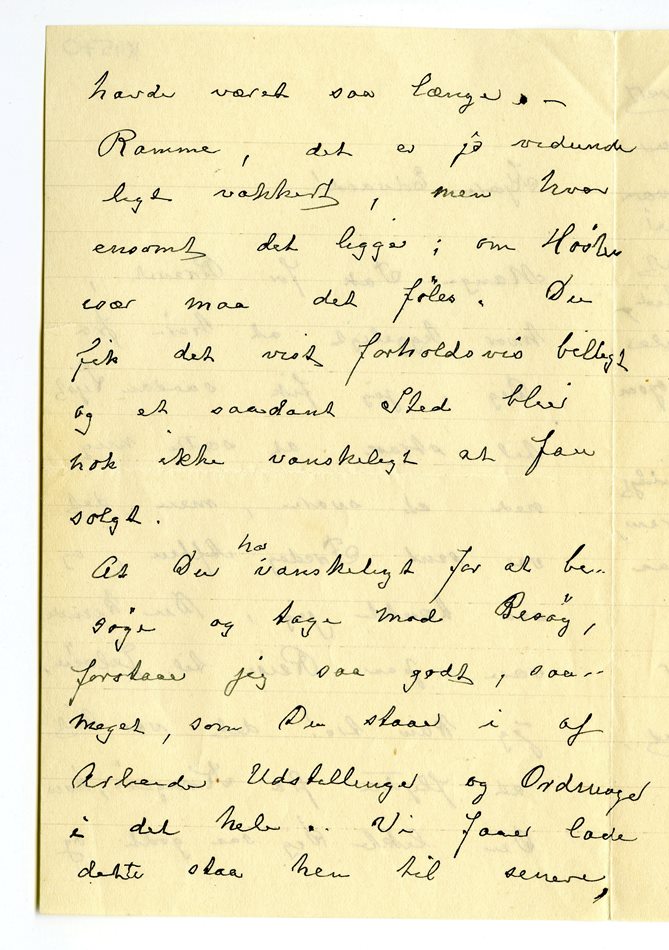 havde været saa længe. –
Ramme, det er jo vidunder
ligt vakkert, men hvor
ensomt det ligger; om Høsten
især maa det føles. Du
fik det vist forholdsvis billigt
og et saadant Sted blir
nok ikke vanskeligt at faa
solgt.
At Du har vanskeligt for at be-
søge og tage mod Besøg,
forstaar jeg saa godt, saa-
meget, som Du staar i af
Arbeide Udstillinger og Ordninger
i det hele .. Vi faar lade
dette staa hen til senere,